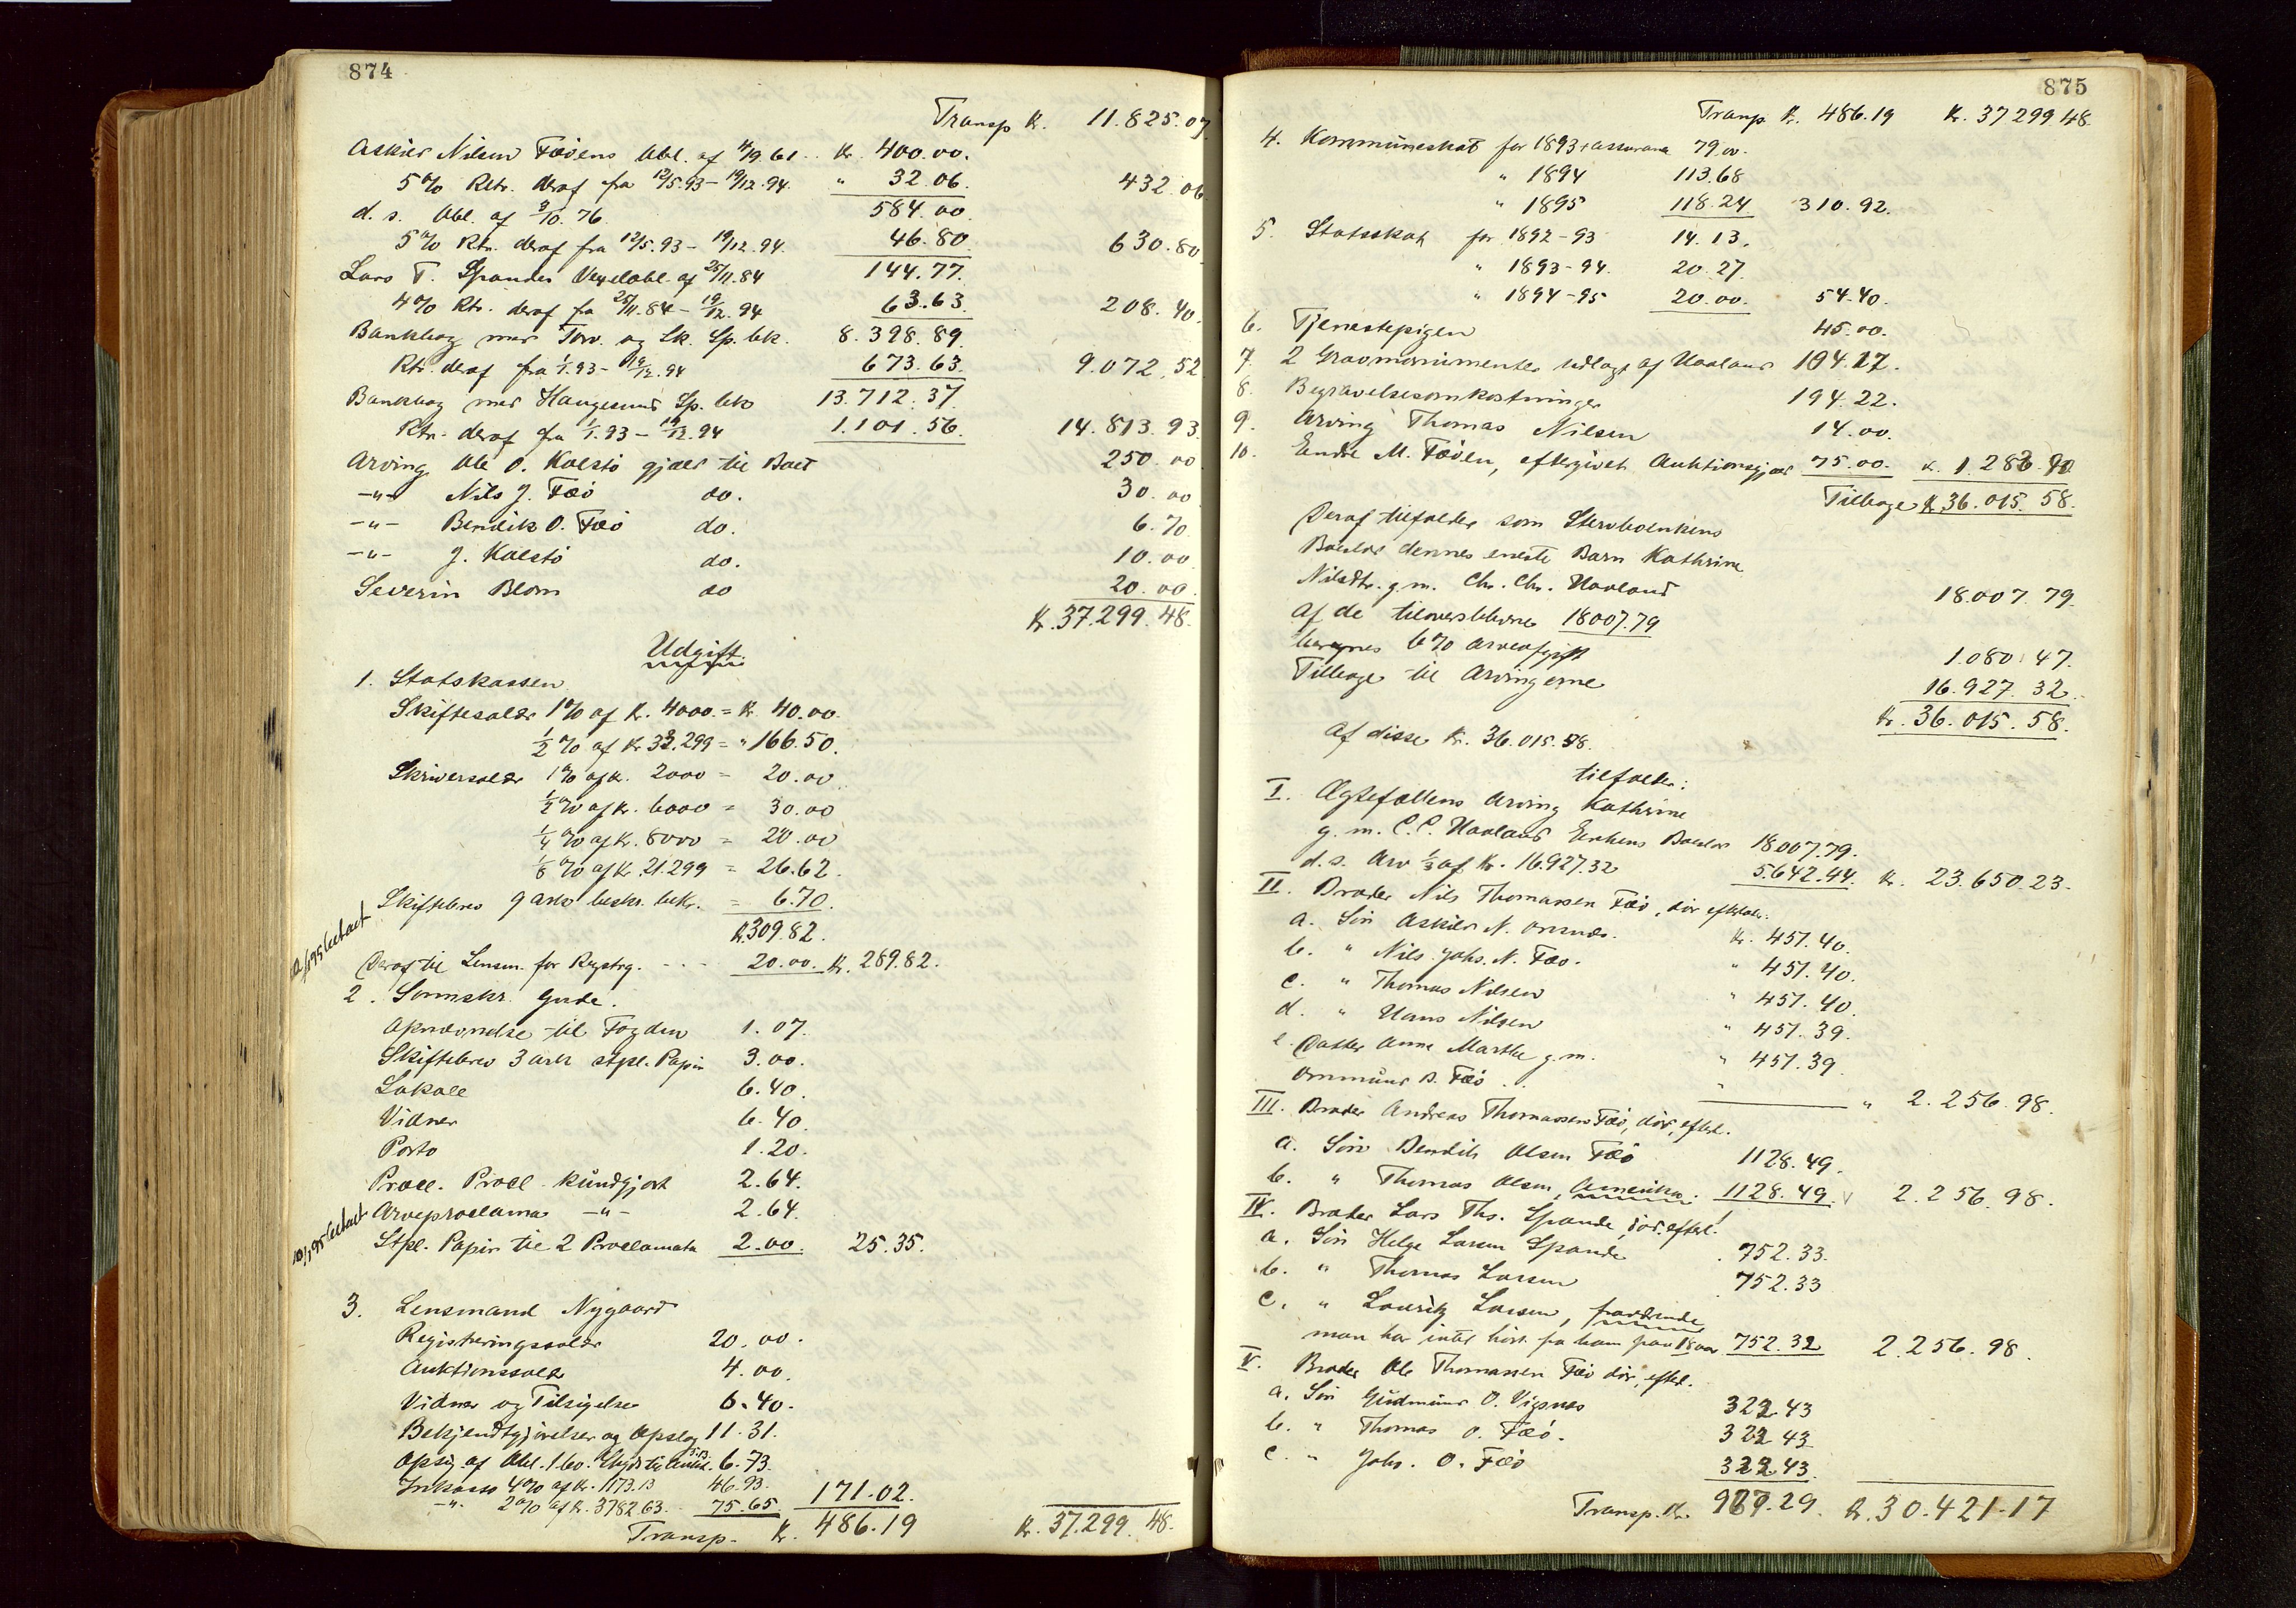 874
Transp Kr. 11.825.07
Askier Nilsen Føöens Obl. af 4/9.61 .. Kr. 400.00.
5% Rtr. deraf fra 12/5.93 – 19/12.94. " 32.06. 432.06
d. s. Obl. af 3/10.76 584.00
5% Rtr. deraf fra 12/5.93 – 19/12.94. 46.80 630.80
Lars T. Spandes Vexelobl. af 25/11.84 144.77.
4% Rtr. deraf fra 25/11.84 – 19/12.94 63.63 208.40.
Bankbog med Torv. og Sk. Sp. bk. 8.398.89.
Rtr. deraf fra 1/1.93 – 19/12.94 673.63. 9.072.52
Bankbog med Haugesund Sp. bk 13.712.37
Rtr. deraf fra 1/1.93 – 19/12.94 1.101.56. 14.813.93
Arving Ole O. Kolstö gjæld til Boet 250.00
–"– Nils J. Fæö do. 30.00
–"– Bendik O. Fæö do. 6.70
–"– J. Kolstö do. 10.00
Severin Blom do 20.00.
Kr. 37.299.48.
Udgift.
1. Statskassen
Skiftesalær 1% af Kr. 4000. = Kr. 40.00.
½% af Kr 33.299 = " 166.50.
Skriversalær 1% af Kr. 2000 = 20.00
½% af Kr. 6000 = 30.00
¼% af Kr. 8000 = 20.00
⅛% af Kr. 21.299 = 26.62.
Skiftebrev 9 ark beskr. bekr. = 6.70.
Kr. 309.82.
Deraf til Lensm. for Regstrg. - - - 20.00. Kr. 289.82.
2. Sorenskr. Gude.
Opnævnelse til Fogden 1.07.
Skiftebrev 3 ark stpl. Papir 3.00.
Lokale 6.40.
Vidner 6.40.
Porto 1.20.
Procl. Procl. kundgjort 2.64.
Arveproclama –"– 2.64.
Stpl. Papir til 2 Proclamata 2.00. 25.35.
3. Lensmand Nygaard
Registreringssalær 20.00.
Auktionssalær 4.00.
Vidner og Tilsigelse 6.40.
Bekjendtgjörelser og Opslag 11.31.
Opsig. af Obl. 1.60. 6.73.
Inkasso 4% af Kr. 1173.13 46.93.
–"– 2% af Kr. 3782.63. 75.65 171.02.
Transp. Kr. 486.19 Kr. 37.299.48.
875
Transp Kr. 486.19 Kr. 37299 48.
4. Kommuneskat for 1893 + assurance 79.00.
" 1894 113.68
" 1895 118.24 310.92.
5. Statsskat for 1892–93 14.13.
" 1893–94. 20.27.
" 1894–95 20.00. 54.40.
6. Tjenestepigen 45.00.
7. 2 Gravmonumenter udlagt af Haaland 104.17.
8. Begravelsesomkostninger 194.22.
9. Arving Thomas Nilsen 14.00.
10. Endre M. Føöen, eftergivet Auktionsgjæld 75.00. Kr. 1.283.90
Tilbage Kr. 36.015.58.
Deraf tilfalder som Stervboenkens
Boeslod dennes eneste Barn Kathrine
Nilsdtr. g. m. Chr. Chr. Haaland 18.007.79.
Af de tiloversblevne 18007.79
beregnes 6% Arveafgift 1.080.47.
Tilbage til Arvingerne 16.927.32.
Kr. 36.015.58.
Af disse Kr. 36.015.58.
tilfalder:
I. Ægtefællens Arving Kathrine
g. m. C. C. Haaland Enkens Boeslod 18007.79.
d. s. Arv ⅓ af Kr. 16.927.32 5.642.44. Kr. 23.650.23.
II. Broder Nils Thomassen Fæö, död efterl.:
a. Sön Askier N. Kr. 451.40.
b. " Nils Johs. N. Fæö. " 451.40.
c. " Thomas Nilsen " 451.40.
d. " Hans Nilsen " 451.39.
e. Datter Anne Marthe g. m. " 451.39.
Ommund B. Fæö .. " 2.256.98.
III. Broder Andreas Thomassen Fæö, död, efterl.
a. Sön Bendik Olsen Fæö 1128.49.
b. " Thomas Olsen, Amerika. 1128.49. 2.256.98.
IV. Broder Lars Ths. Spande, död. efterl.
a. Sön Helge Larsen Spande 752.33.
b. " Thomas Larsen 752.33
c. " Lauritz Larsen, fraværende,
man har intet hört fra ham paa 18 aar 752.32 2.256.98.
V. Broder Ole Thomassen Fæö död, efterl.
a. Sön Gudmund O. Vigsnes 322.43
b. " Thomas O. Fæö. 322 43
c. " Johs. O. Fæö 322.43.
Transp. Kr. 967.29. Kr. 30.421.17